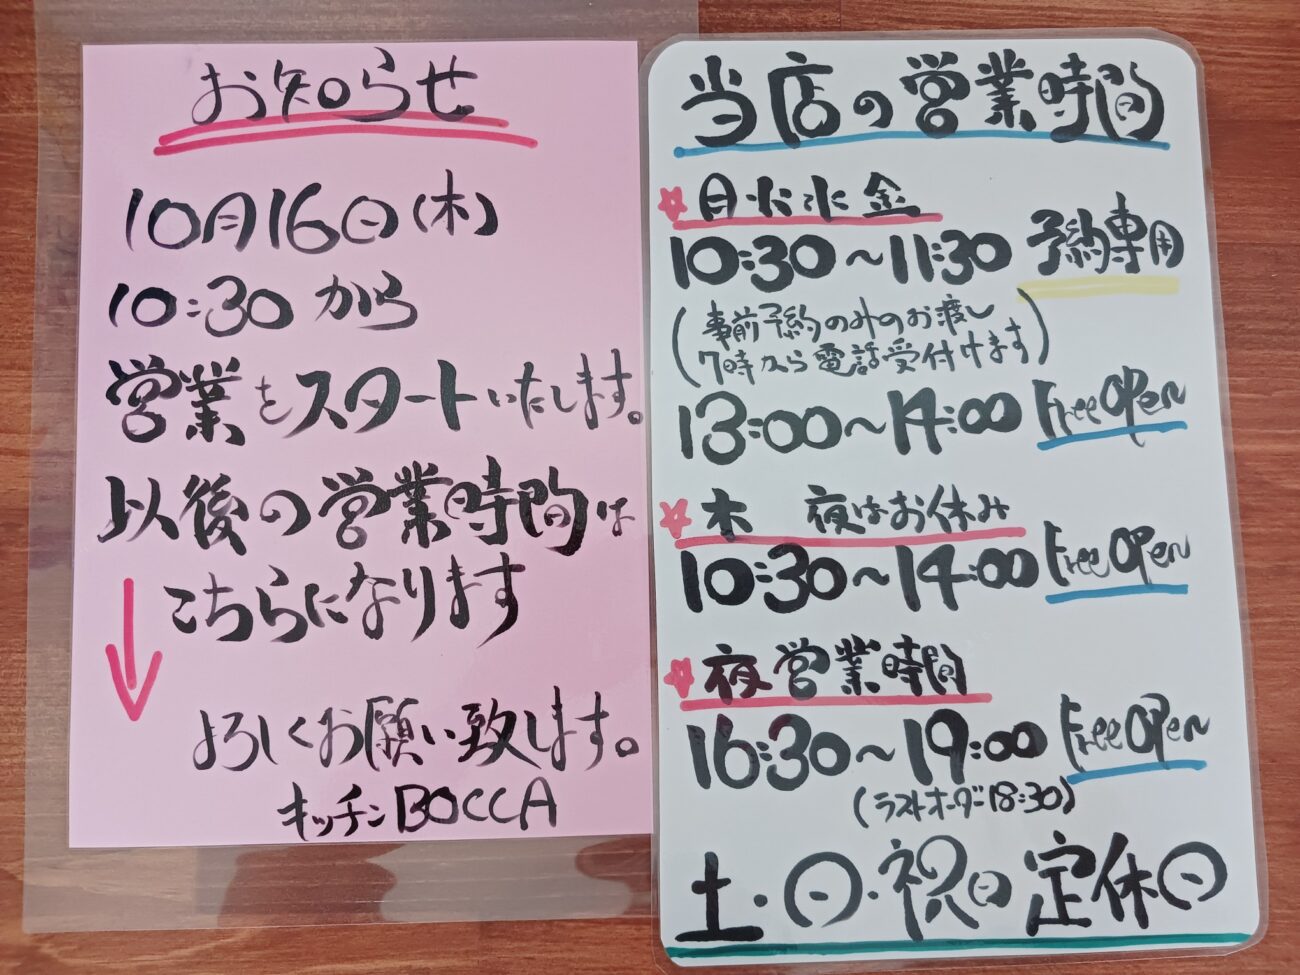 お知らせ
10月16日(木)
10:30から
営業をスタートいたします。
以後の営業時間は
こちらになります
よろしくお願い致します。
キッチンBOCCA
当店の営業時間
月火水金
10:30〜11:30 予約専用
(事前予約のみのお渡し
7時から電話受付けます)
13:00〜14:00 Free Open
木 夜はお休み
10:30〜14:00 Free Open
夜営業時間
16:30〜19:00 Free Open
(ラストオーダー18:30)
土・日・祝日定休日